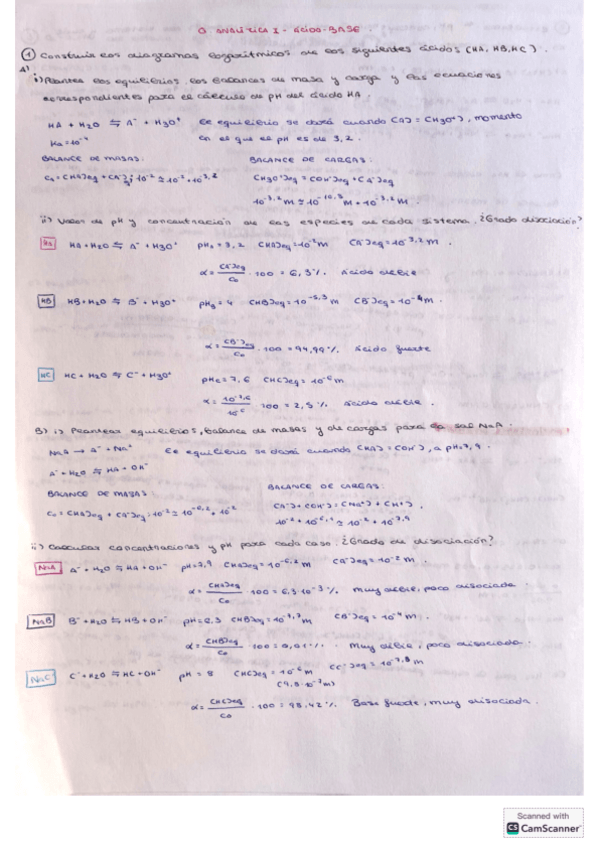 Q ANALÍTICA I - ÁCIDO-BASE.
① Construir los diagramas logarítmicos de los siguientes ácidos (HA, HB, HC).
A)
i) Plantea los equilibrios, los balances de masa y carga y las ecuaciones
correspondientes para el cálculo de pH del ácido HA.
HA + H2O ⇆ A⁻ + H3O⁺ Ee equilibrio se dará cuando [A⁻] = [H3O⁺], momento
Ka = 10⁻⁴ en el que el pH es de 3,2.
BALANCE DE MASAS: BALANCE DE CARGAS:
C0 = [HA]eq + [A⁻]eq; 10⁻² ≃ 10⁻² + 10⁻³,² [H3O⁺]eq = [OH⁻]eq + [A⁻]eq
10⁻³,² M ≃ 10⁻¹⁰,⁸ M + 10⁻³,² M.
ii) Valor de pH y concentración de las especies de cada sistema. ¿Grado disociación?
HA HA + H2O ⇆ A⁻ + H3O⁺ pHA = 3,2 [HA]eq = 10⁻² M [A⁻]eq = 10⁻³,² M.
α = [A⁻]eq / C0 · 100 = 6,3% Ácido débil
HB HB + H2O ⇆ B⁻ + H3O⁺ pHB = 4 [HB]eq = 10⁻⁵,³ M [B⁻]eq = 10⁻⁴ M.
α = [B⁻]eq / C0 · 100 = 94,99% Ácido fuerte
HC HC + H2O ⇆ C⁻ + H3O⁺ pHC = 7,6 [HC]eq = 10⁻⁶ M
α = 10⁻⁷,⁶ / 10⁻⁶ · 100 = 2,5% Ácido débil.
B) i) Plantear equilibrios, balance de masas y de cargas para la sal NaA.
NaA → A⁻ + Na⁺ Ee equilibrio se dará cuando [HA] = [OH⁻], a pH=7,9.
A⁻ + H2O ⇆ HA + OH⁻
BALANCE DE MASAS: BALANCE DE CARGAS:
C0 = [HA]eq + [A⁻]eq; 10⁻² ≃ 10⁻⁶,² + 10⁻² [A⁻] + [OH⁻] = [Na⁺] + [H⁺],
10⁻² + 10⁻⁶,¹ ≃ 10⁻² + 10⁻⁷,⁹
ii) Calcular concentraciones y pH para cada caso. ¿Grado de disociación?
NaA A⁻ + H2O ⇆ HA + OH⁻ pH = 7,9 [HA]eq = 10⁻⁶,² M [A⁻]eq = 10⁻² M.
α = [HA]eq / C0 · 100 = 6,3·10⁻³% Muy débil, poco disociada.
NaB B⁻ + H2O ⇆ HB + OH⁻ pH = 6,3 [HB]eq = 10⁻⁷,⁷ M [B⁻]eq = 10⁻⁴ M.
α = [HB]eq / C0 · 100 = 0,01% Muy débil, poco disociada.
NaC C⁻ + H2O ⇆ HC + OH⁻ pH = 8 [HC]eq = 10⁻⁶ M [C⁻]eq = 10⁻⁷,⁸ M
(9,8·10⁻⁷ M)
α = [HC]eq / C0 · 100 = 98,42% Base fuerte, muy disociada.
Scanned with
CS CamScanner